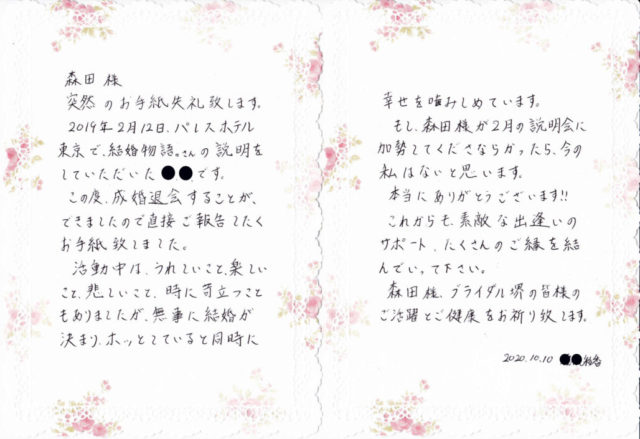 森田 様
突然 のお手紙失礼致します。
2019年2月12日、パレスホテル
東京で、結婚物語。さんの説明を
していただいた ●● です。
この度、成婚退会することが、
できましたので直接ご報告したく
お手紙致しました。
活動中は、うれしいこと、楽しい
こと、悲しいこと、時に苛立つこと
もありましたが、無事に結婚が
決まり、ホッとしていると同時に
幸せを噛みしめています。
もし、森田様が2月の説明会に
加勢してくださらなかったら、今の
私はないと思います。
本当にありがとうございます!!
これからも、素敵な出逢いの
サポート、たくさんのご縁を結
んでいって下さい。
森田様、ブライダル堺の皆様の
ご活躍とご健康をお祈り致します。
2020.10.10 ●●